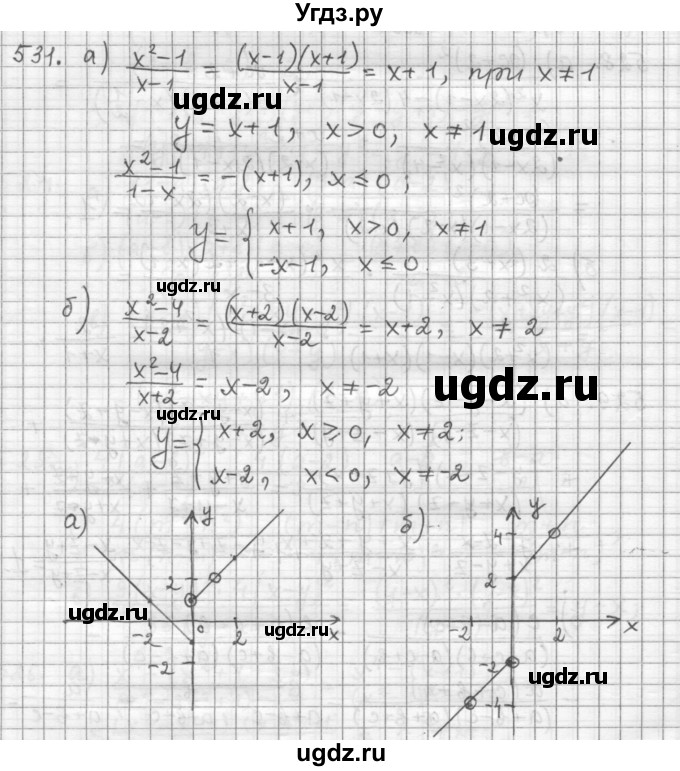 Угдз.ру
531. а) x²-1/x-1 = (x-1)(x+1)/x-1 = x+1, при x≠1
ugdz.ru ugdz.ru
y = x+1, x>0, x≠1 ugdz.ru
x²-1/1-x = -(x+1), x≤0;
y = { x+1, x>0, x≠1
-x-1, x≤0.
ugdz.ru
б) x²-4/x-2 = (x+2)(x-2)/x-2 = x+2, x≠2
x²-4/x+2 = x-2, x≠-2 ugdz.ru
ugdz.ru
y = { x+2, x≥0, x≠2;
x-2, x<0, x≠-2
а) y б) y
4
2 2
ugdz.ru ugdz.ru
-2 0 2 x -2 2 x
-2 -2
-4
ugdz.ru
ugdz.ru